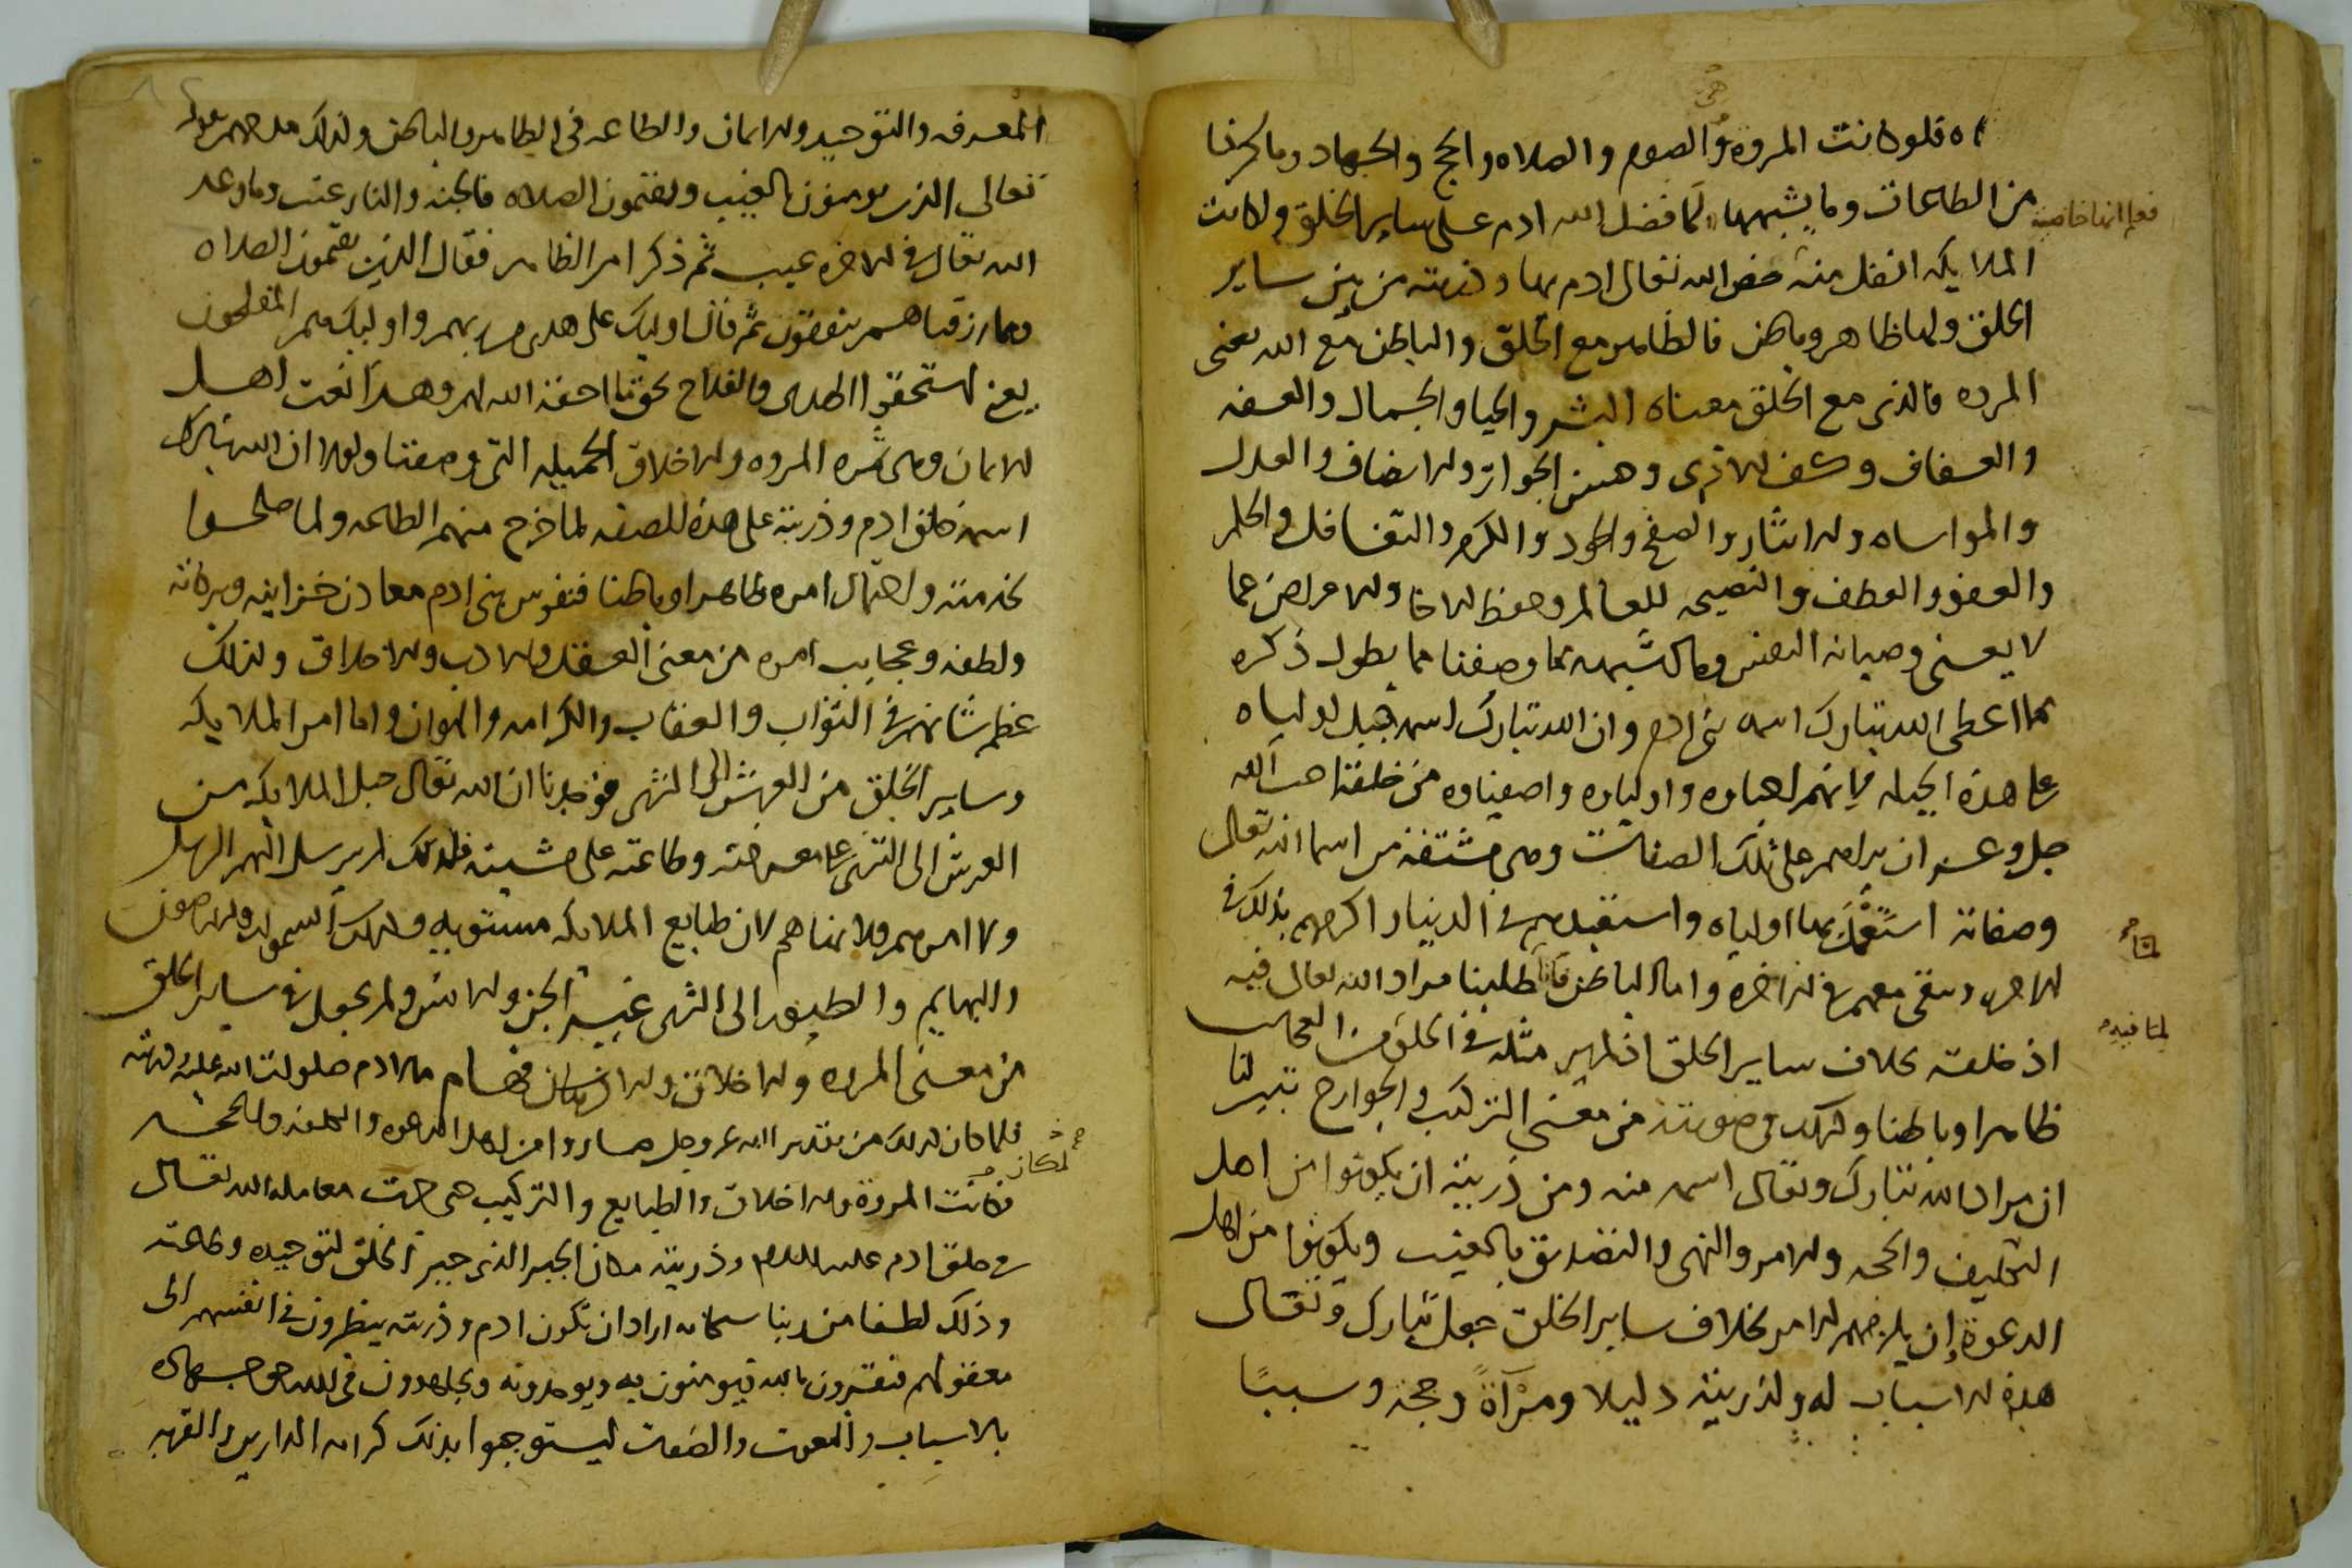 اه فلو كانت المروه هى والصوم والصلاه والحج والجهاد وما ذكرنا
من الطاعات وما يشبهها لما فضل الله ادم على ساير الخلق ولكانت
الملايكه افضل منه خص الله تعالى ادم بها وذريته من بين ساير
الخلق ولها ظاهر وباطن فالظاهر مع الخلق والباطن مع الله يعنى
المروه فالذى مع الخلق معناه البشر والحيا والجمال والعفه
والعفاف وكف الاذى وحسن الجوار والانصاف والعدل
والمواساه والايثار والصفح والجود والكرم والتغافل والحلم
والعفو والعطف والنصيحه للعالم وحفظ الاخا والاعراض عما
لا يعنى وصيانه النفس وما اشبهه مما وصفنا مما يطول ذكره
مما اعطى الله تبارك اسمه بنى ادم وان الله تبارك اسمه جبل اولياه
على هذه الجبله لانهم احباوه واولياوه واصفياوه من خلقه احب الله
جل وعز ان يراهم على تلك الصفات وهى مشتقه من اسما الله تعالى
وصفاته استعمل بها اولياه واستعبدهم فى الدنيا و اكرمهم بذلك فى
الاخره وتبقى معهم فى الاخره واما الباطن فانا طلبنا مراد الله تعالى فيه
اذ خلقه بخلاف ساير الخلق اذ لم ير مثله فى الخلق من العجايب
ظاهرا وباطنا وكذلك فى صورته من معنى التركيب والجوارح تبين لنا
ان مراد الله تبارك وتعالى اسمه منه ومن ذريته ان يكونوا من اهل
التكليف والمحنه والامر والنهى والتصديق بالغيب ويكونوا من اهل
الدعوة ان يلزمهم الامر بخلاف ساير الخلق جعل تبارك وتعالى
هذه الاسباب له ولذريته دليلا ومرآةً وحجة وسببًا
المعرفه والتوحيد والايمان والطاعه فى الظاهر والباطن ولذلك
تعالى الذين يومنون بالغيب ويقيمون الصلاه فالجنه والنار غيب وما وعد
الله تعالى فى الاخره غيب ثم ذكر امر الظاهر فقال الذين يقيمون الصلاه
ومما رزقناهم ينفقون ثم قال اوليك على هدى من ربهم واوليك هم المفلحون
يعنى استحقوا الهدى والفلاح بحق ما احقه الله لهم وهذا نعت اهل
الايمان وهى ثمره المروه والاخلاق الجميله التى وصفنا ولولا ان الله تبارك
اسمه خلق ادم وذريته على هذه الصفه لما خرج منهم الطاعه ولما صلحوا
لخدمته واحتمال امره ظاهرا وباطنا فنفوس بنى ادم معادن خزاينه وبركاته
ولطفه وعجايب امره من معنى العقل والادب والاخلاق ولذلك
عظم شانهم فى الثواب والعقاب والكرامه والهوان واما امر الملايكه
وساير الخلق من العرش الى الثرى فوجدنا ان الله تعالى جبل الملايكه من
العرش الى الثرى على معرفته وطاعته على مشيته فلذلك لم يرسل اليهم الرسل
ولا امرهم ولا نهاهم لان طبايع الملايكه مستويه وكذلك السموات والارضون
والبهايم والطيور الى الثرى غير الجن والانس ولم يجعل فى ساير الخلق
من معنى المروه والاخلاق والانسان
فلما كان لذلك من تقدير الله عز وجل صاروا من اهل الدعوه
فكانت المروة والاخلاق والطبايع والتركيب هى جهت معامله الله تعالى
فى خلق ادم عليه السلام وذريته مكان الجبر الذى جبر الخلق لتوحيده وطاعته
وذلك لطفا من ربنا سبحانه اراد ان تكون ادم وذريته ينظرون فى انفسهم الى
معقولهم فيقرون بالله فيومنون به ويوحدونه ويجاهدون فى الله حق جهاده
بالاسباب والنعوت والصفات ليستوجبوا بذلك كرامه الدارين والقربه